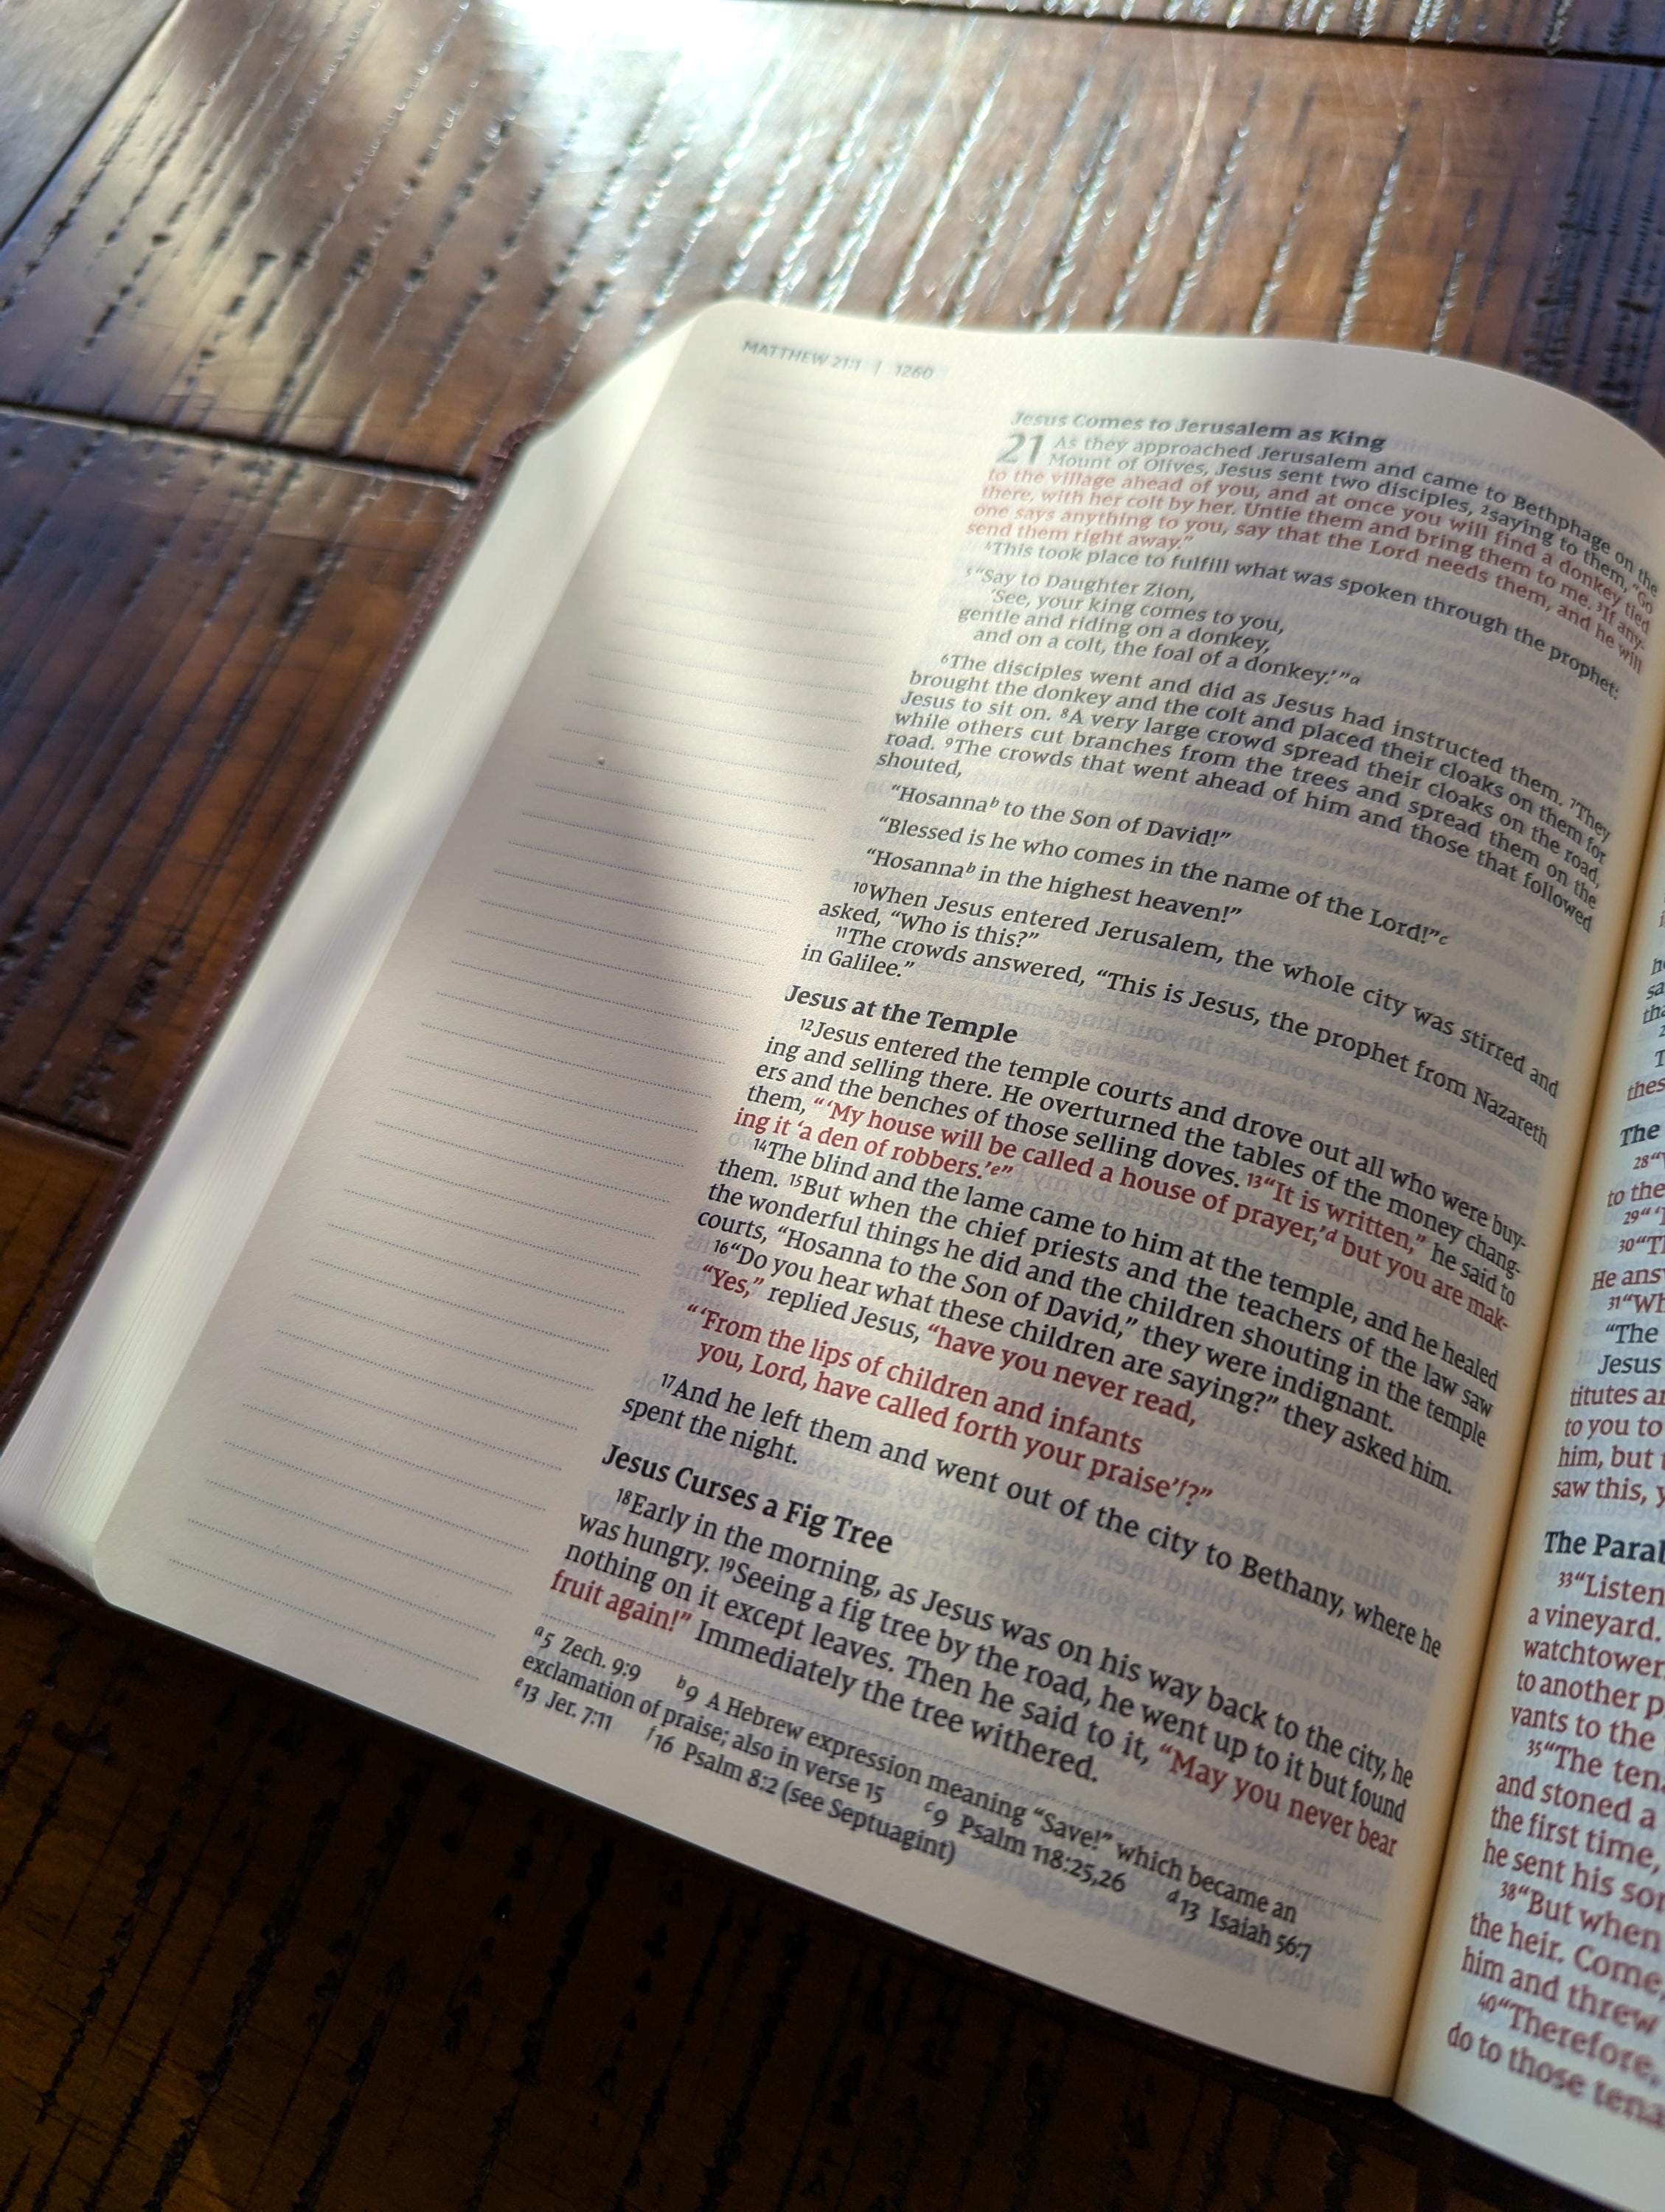 MATTHEW 21:1 | 1260
Jesus Comes to Jerusalem as King
21 As they approached Jerusalem and came to Bethphage on the
Mount of Olives, Jesus sent two disciples, ²saying to them, “Go
to the village ahead of you, and at once you will find a donkey tied
there, with her colt by her. Untie them and bring them to me. ³If any-
one says anything to you, say that the Lord needs them, and he will
send them right away.”
⁴This took place to fulfill what was spoken through the prophet:
⁵“Say to Daughter Zion,
‘See, your king comes to you,
gentle and riding on a donkey,
and on a colt, the foal of a donkey.’ ”a
⁶The disciples went and did as Jesus had instructed them. ⁷They
brought the donkey and the colt and placed their cloaks on them for
Jesus to sit on. ⁸A very large crowd spread their cloaks on the road,
while others cut branches from the trees and spread them on the
road. ⁹The crowds that went ahead of him and those that followed
shouted,
“Hosannab to the Son of David!”
“Blessed is he who comes in the name of the Lord!”c
“Hosannab in the highest heaven!”
¹⁰When Jesus entered Jerusalem, the whole city was stirred and
asked, “Who is this?”
¹¹The crowds answered, “This is Jesus, the prophet from Nazareth
in Galilee.”
Jesus at the Temple
¹²Jesus entered the temple courts and drove out all who were buy-
ing and selling there. He overturned the tables of the money chang-
ers and the benches of those selling doves. ¹³“It is written,” he said to
them, “‘My house will be called a house of prayer,’d but you are mak-
ing it ‘a den of robbers.’e”
¹⁴The blind and the lame came to him at the temple, and he healed
them. ¹⁵But when the chief priests and the teachers of the law saw
the wonderful things he did and the children shouting in the temple
courts, “Hosanna to the Son of David,” they were indignant.
¹⁶“Do you hear what these children are saying?” they asked him.
“Yes,” replied Jesus, “have you never read,
“‘From the lips of children and infants
you, Lord, have called forth your praise’f?”
¹⁷And he left them and went out of the city to Bethany, where he
spent the night.
Jesus Curses a Fig Tree
¹⁸Early in the morning, as Jesus was on his way back to the city, he
was hungry. ¹⁹Seeing a fig tree by the road, he went up to it but found
nothing on it except leaves. Then he said to it, “May you never bear
fruit again!” Immediately the tree withered.
a5 Zech. 9:9 b9 A Hebrew expression meaning “Save!” which became an
exclamation of praise; also in verse 15 c9 Psalm 118:25,26 d13 Isaiah 56:7
e13 Jer. 7:11 f16 Psalm 8:2 (see Septuagint)
The
28“
to the
29“
30“
He
31“
“The
Jesus
to you to
him, but
saw this,
The
33“Listen
a vineyard.
to another
to the
35“The
and stoned a
the first time,
he sent his
38“But when
the heir. Come,
him and threw
40“Therefore,
do to those